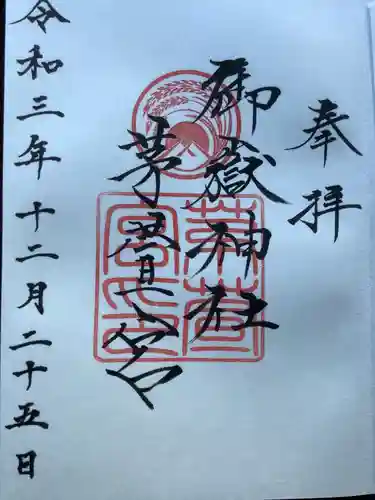 奉拝
御嶽神社
茅萱宮
令和三年十二月二十五日